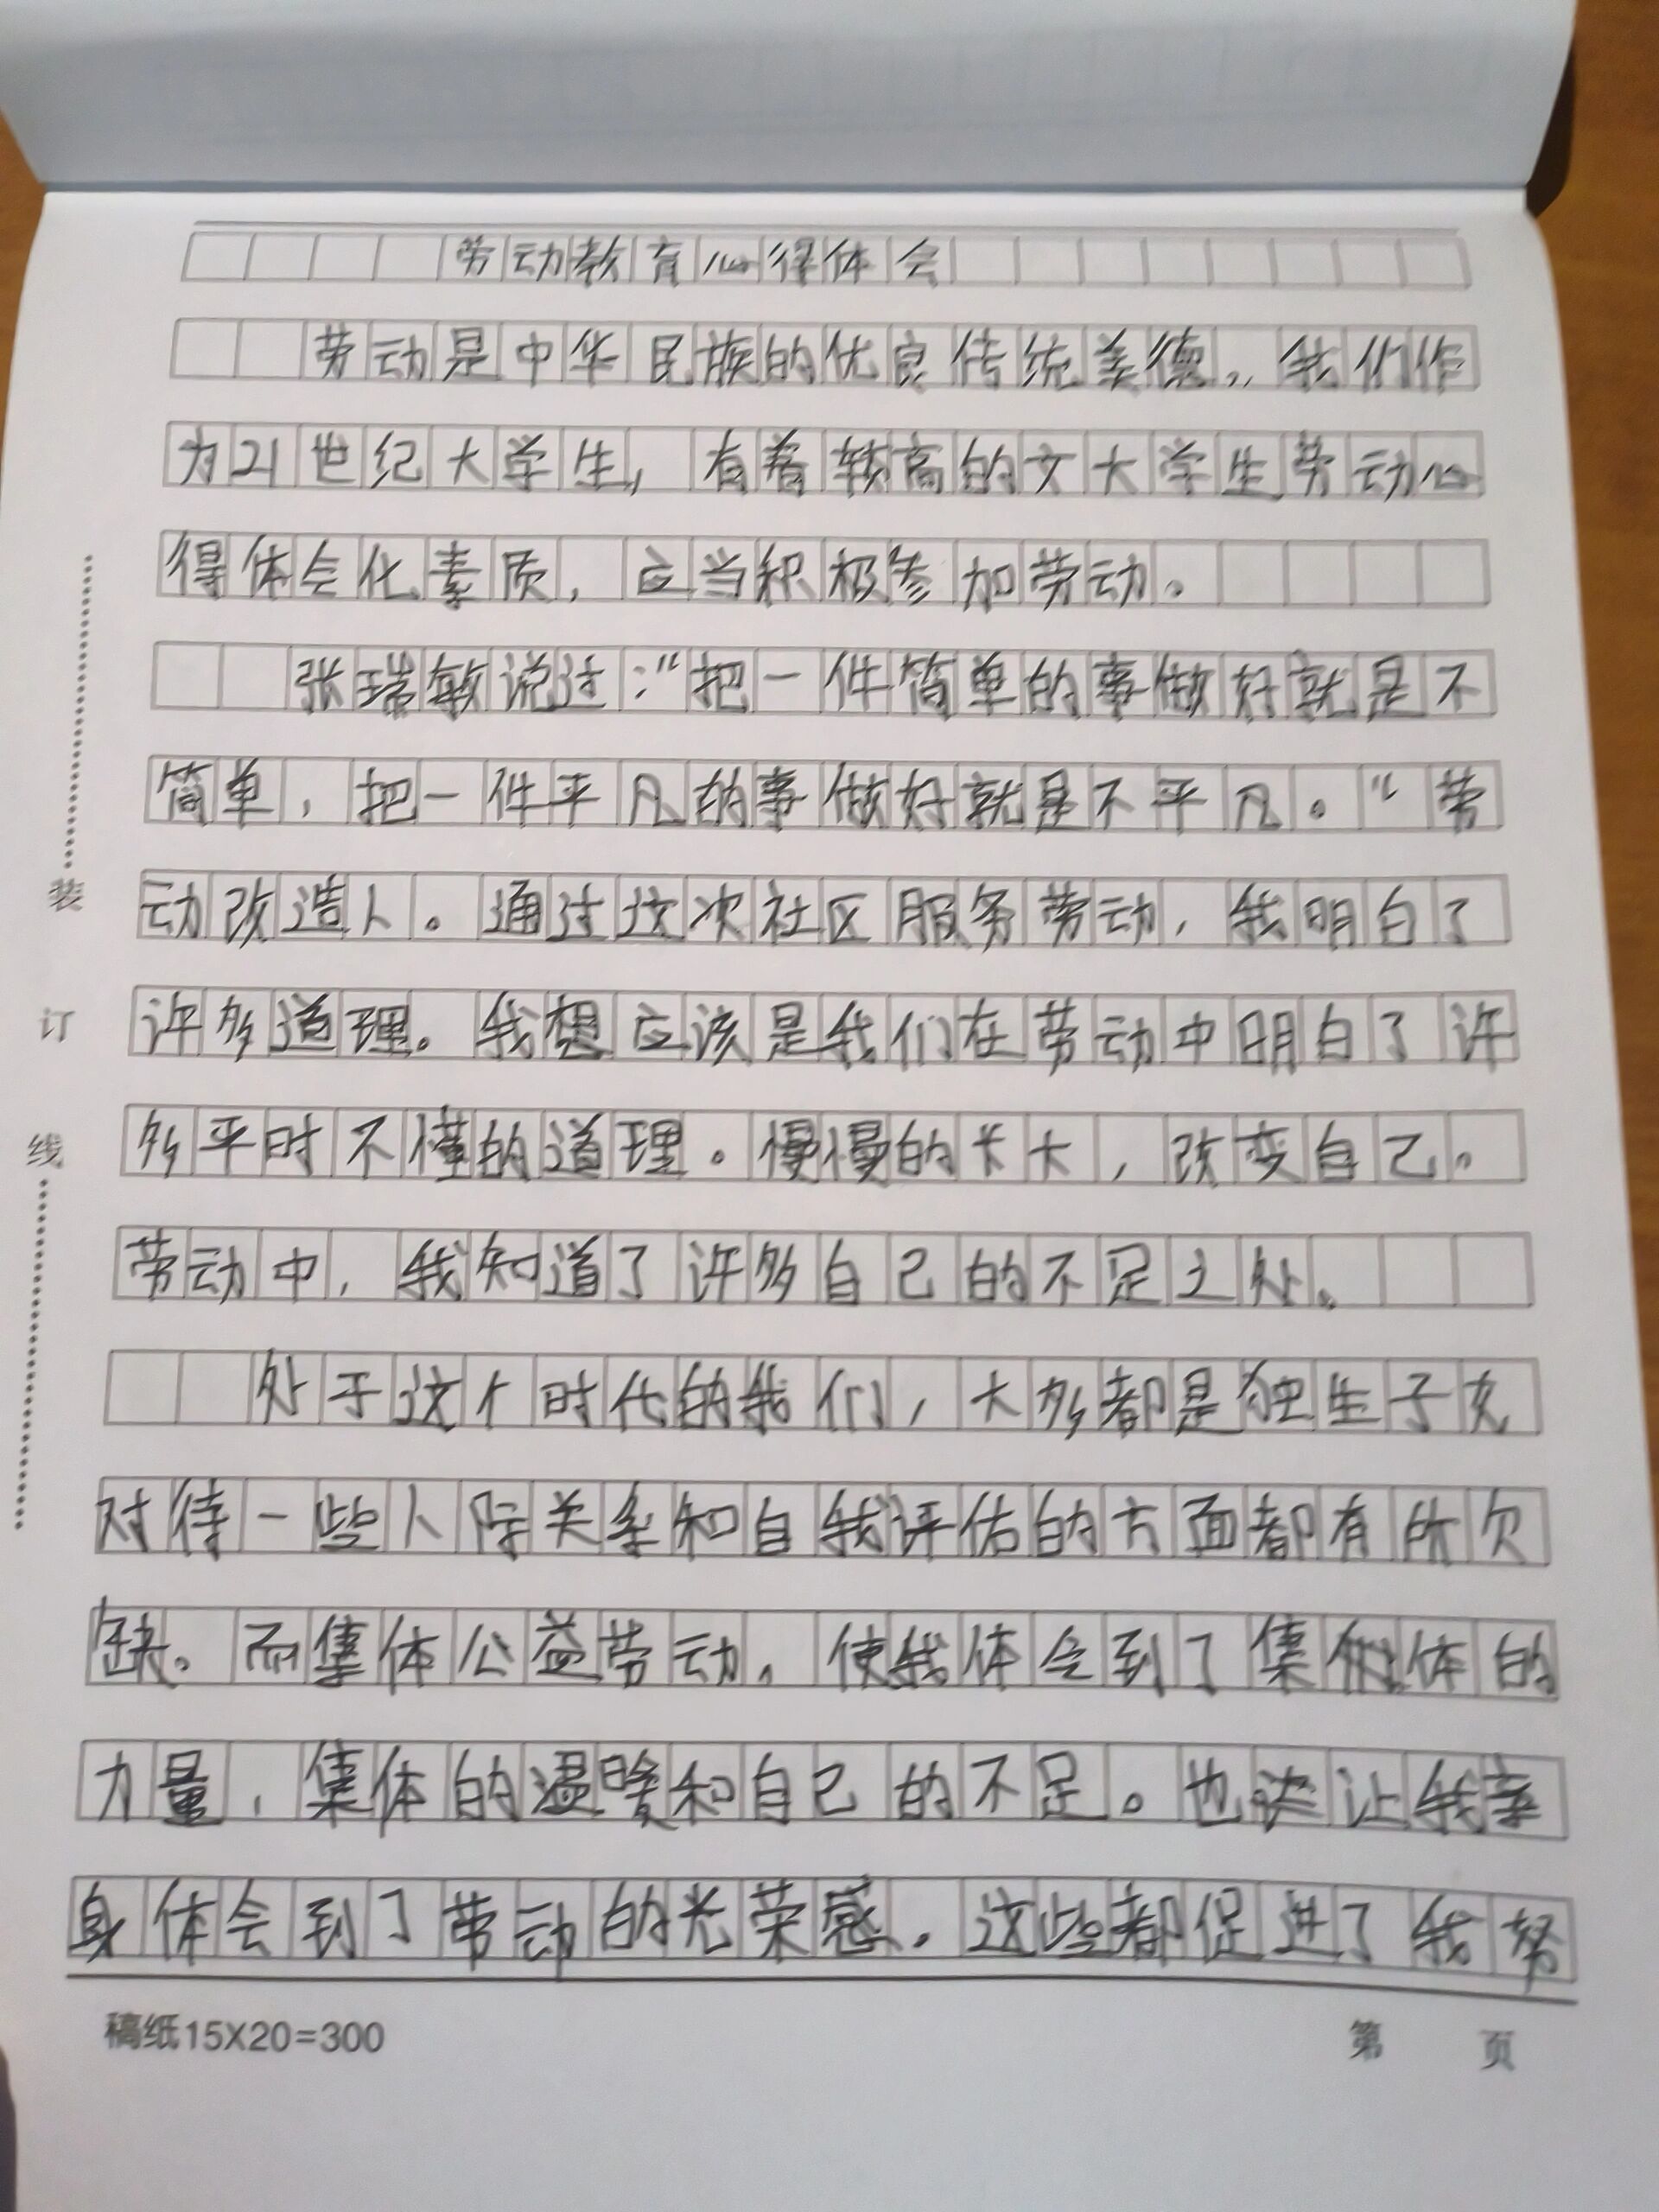 劳动教育心得体会
劳动是中华民族的优良传统美德。我们作
为21世纪大学生，有着较高的文大学生劳动心
得体会化素质，应当积极参加劳动。
张瑞敏说过：“把一件简单的事做好就是不
简单，把一件平凡的事做好就是不平凡。“劳
动改造人。通过这次社区服务劳动，我明白了
许多道理。我想应该是我们在劳动中明白了许
多平时不懂的道理。慢慢的长大，改变自己。
劳动中，我知道了许多自己的不足之处。
处于这个时代的我们，大多都是独生子女
对待一些人际关系和自我评估的方面都有所欠
缺。而集体公益劳动，使我体会到了集体的
力量，集体的温暖和自己的不足。也让我亲
身体会到了劳动的光荣感。这些都促进了我努
装
订
线
稿纸15X20=300
第 页